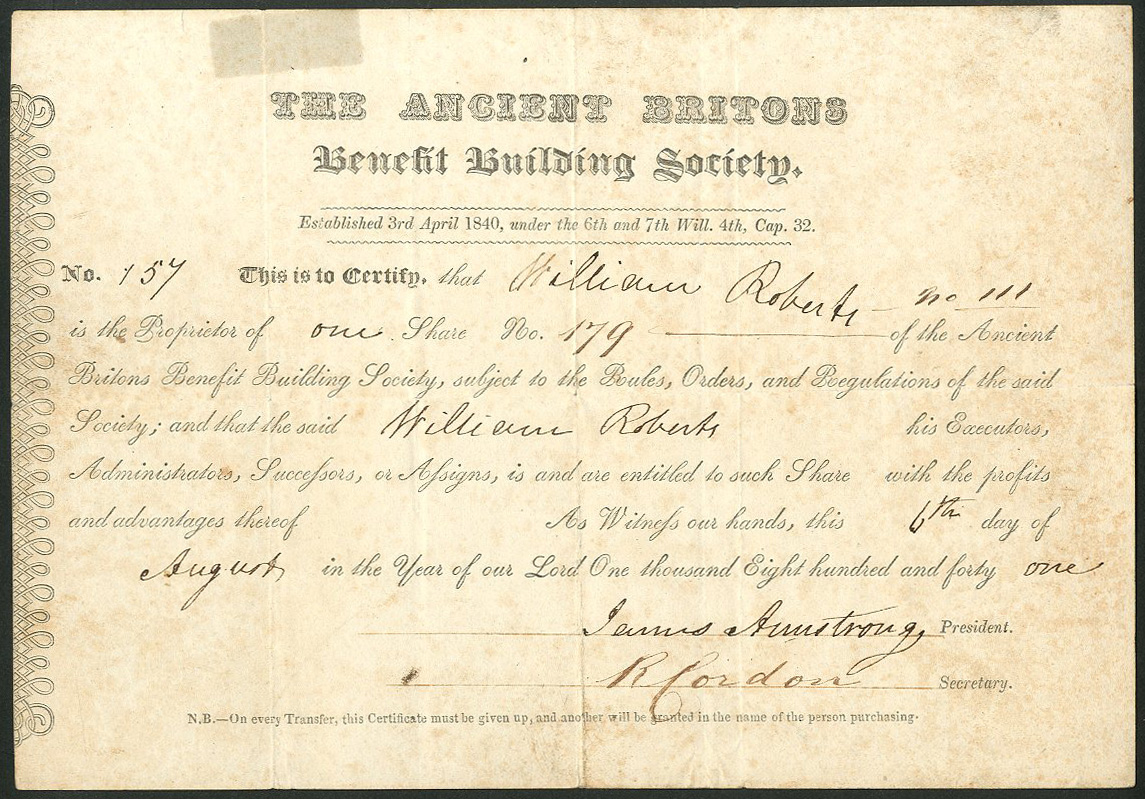 THE ANCIENT BRITONS
Benefit Building Society.
Established 3rd April 1840, under the 6th and 7th Will. 4th, Cap. 32.
No. 157 This is to Certify, that William Roberts no 111
is the Proprietor of one Share No. 179 of the Ancient
Britons Benefit Building Society, subject to the Rules, Orders, and Regulations of the said
Society; and that the said William Roberts his Executors,
Administrators, Succeſsors, or Aſsigns, is and are entitled to such Share with the profits
and advantages thereof As Witneſs our hands, this 6th day of
August in the Year of our Lord One thousand Eight hundred and forty one
James Armstrong President.
R Cordon Secretary.
N.B.—On every Transfer, this Certificate must be given up, and another will be granted in the name of the person purchasing.